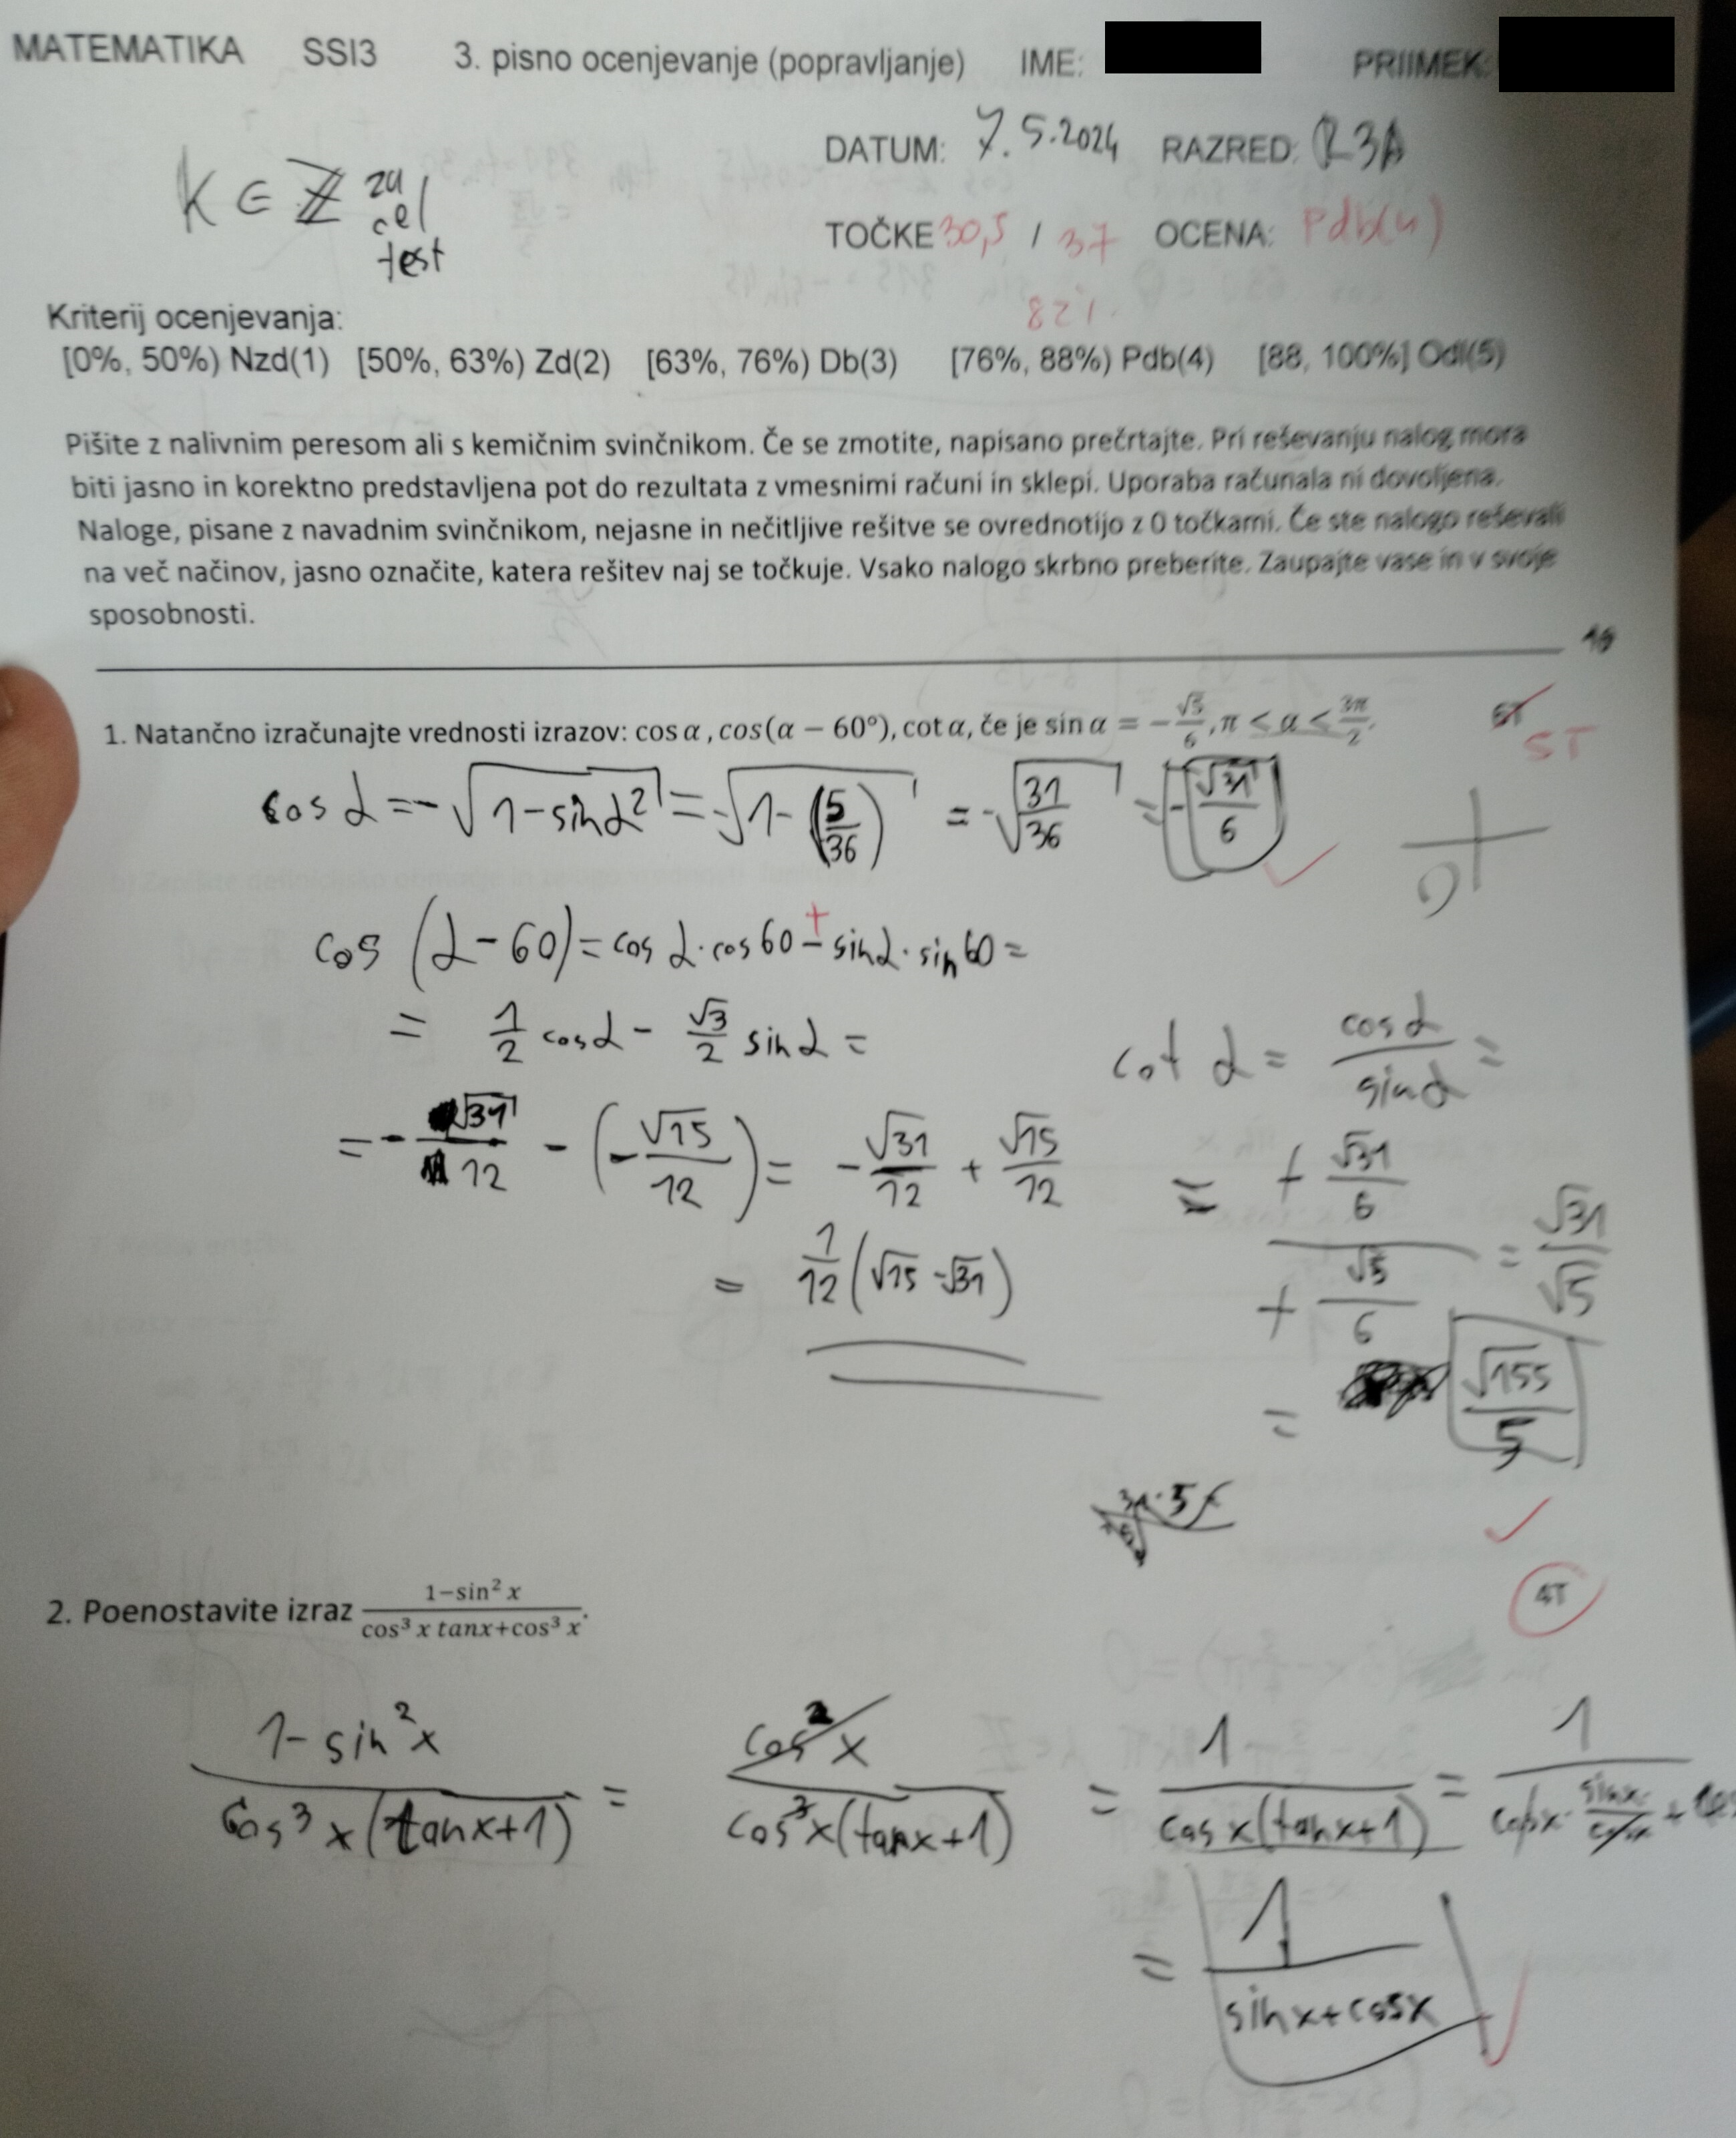 MATEMATIKA SSI3 3. pisno ocenjevanje (popravljanje) IME: PRIIMEK:
DATUM: 7.5.2024 RAZRED: R3A
K ∈ ℤ za
cel
test
TOČKE 30,5 / 37 OCENA: Pdb(4)
82%
Kriterij ocenjevanja:
[0%, 50%) Nzd(1) [50%, 63%) Zd(2) [63%, 76%) Db(3) [76%, 88%) Pdb(4) [88, 100%] Odl(5)
Pišite z nalivnim peresom ali s kemičnim svinčnikom. Če se zmotite, napisano prečrtajte. Pri reševanju nalog mora
biti jasno in korektno predstavljena pot do rezultata z vmesnimi računi in sklepi. Uporaba računala ni dovoljena.
Naloge, pisane z navadnim svinčnikom, nejasne in nečitljive rešitve se ovrednotijo z 0 točkami. Če ste nalogo reševali
na več načinov, jasno označite, katera rešitev naj se točkuje. Vsako nalogo skrbno preberite. Zaupajte vase in v svoje
sposobnosti.
1. Natančno izračunajte vrednosti izrazov: cos α , cos(α − 60°), cot α, če je sin α = −√5/6 , π < α < 3π/2.
6T
5T
cos α = -√(1-sin α²) = -√(1-(5/36)) = -√(31/36) = -√31/6
cos (α-60) = cos α·cos 60 - sin α·sin 60 =
+
= 1/2 cos α - √3/2 sin α =
= -√31/12 - (-√15/12) = -√31/12 + √15/12
= 1/12 (√15 - √31)
cot α = cos α/sin α =
= + √31/6 / + √5/6 = √31/√5
= √155/5
2. Poenostavite izraz (1−sin² x)/(cos³ x tanx+cos³ x).
4T
(1-sin²x)/(cos³x(tanx+1)) = cos²x/(cos³x(tanx+1)) = 1/(cos x(tanx+1)) = 1/(cosx·sinx/cosx +
= 1/(sinx+cosx)